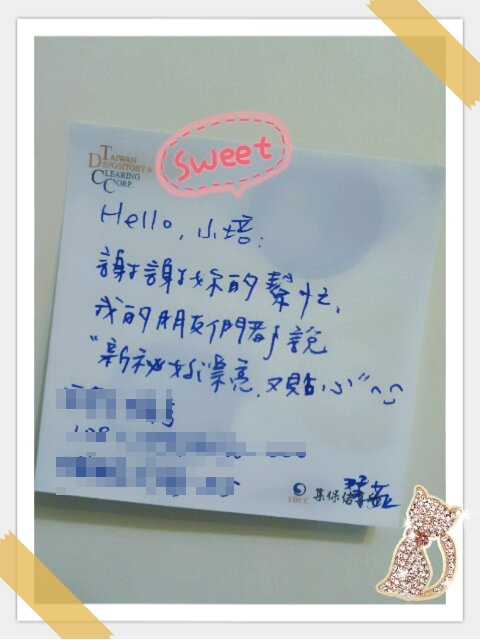 Sweet
TAIWAN
DEPOSITORY &
CLEARING
CORP.
Hello, 小培:
謝謝妳的幫忙、
我的朋友們都說
"新祕好漂亮,又貼心"~
TDCC 集保結算所